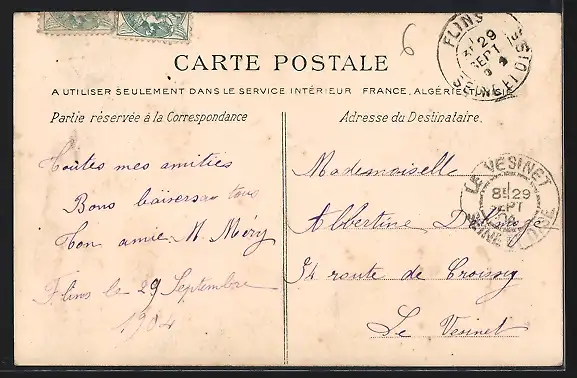 6
FLINS
29
SEPT
SEINE ET OISE
CARTE POSTALE
A UTILISER SEULEMENT DANS LE SERVICE INTÉRIEUR FRANCE, ALGÉRIE, TUNISIE
Partie réservée à la Correspondance
Adresse du Destinataire.
Toutes mes amities
Bons baisers a tous
Ton amie M. Méry
Flins le 29 Septembre
1904
Mademoiselle
Albertine
54 route de Croissy
Le Vesinet
LE VESINET
8E 29
SEPT
04
SEINE ET OISE